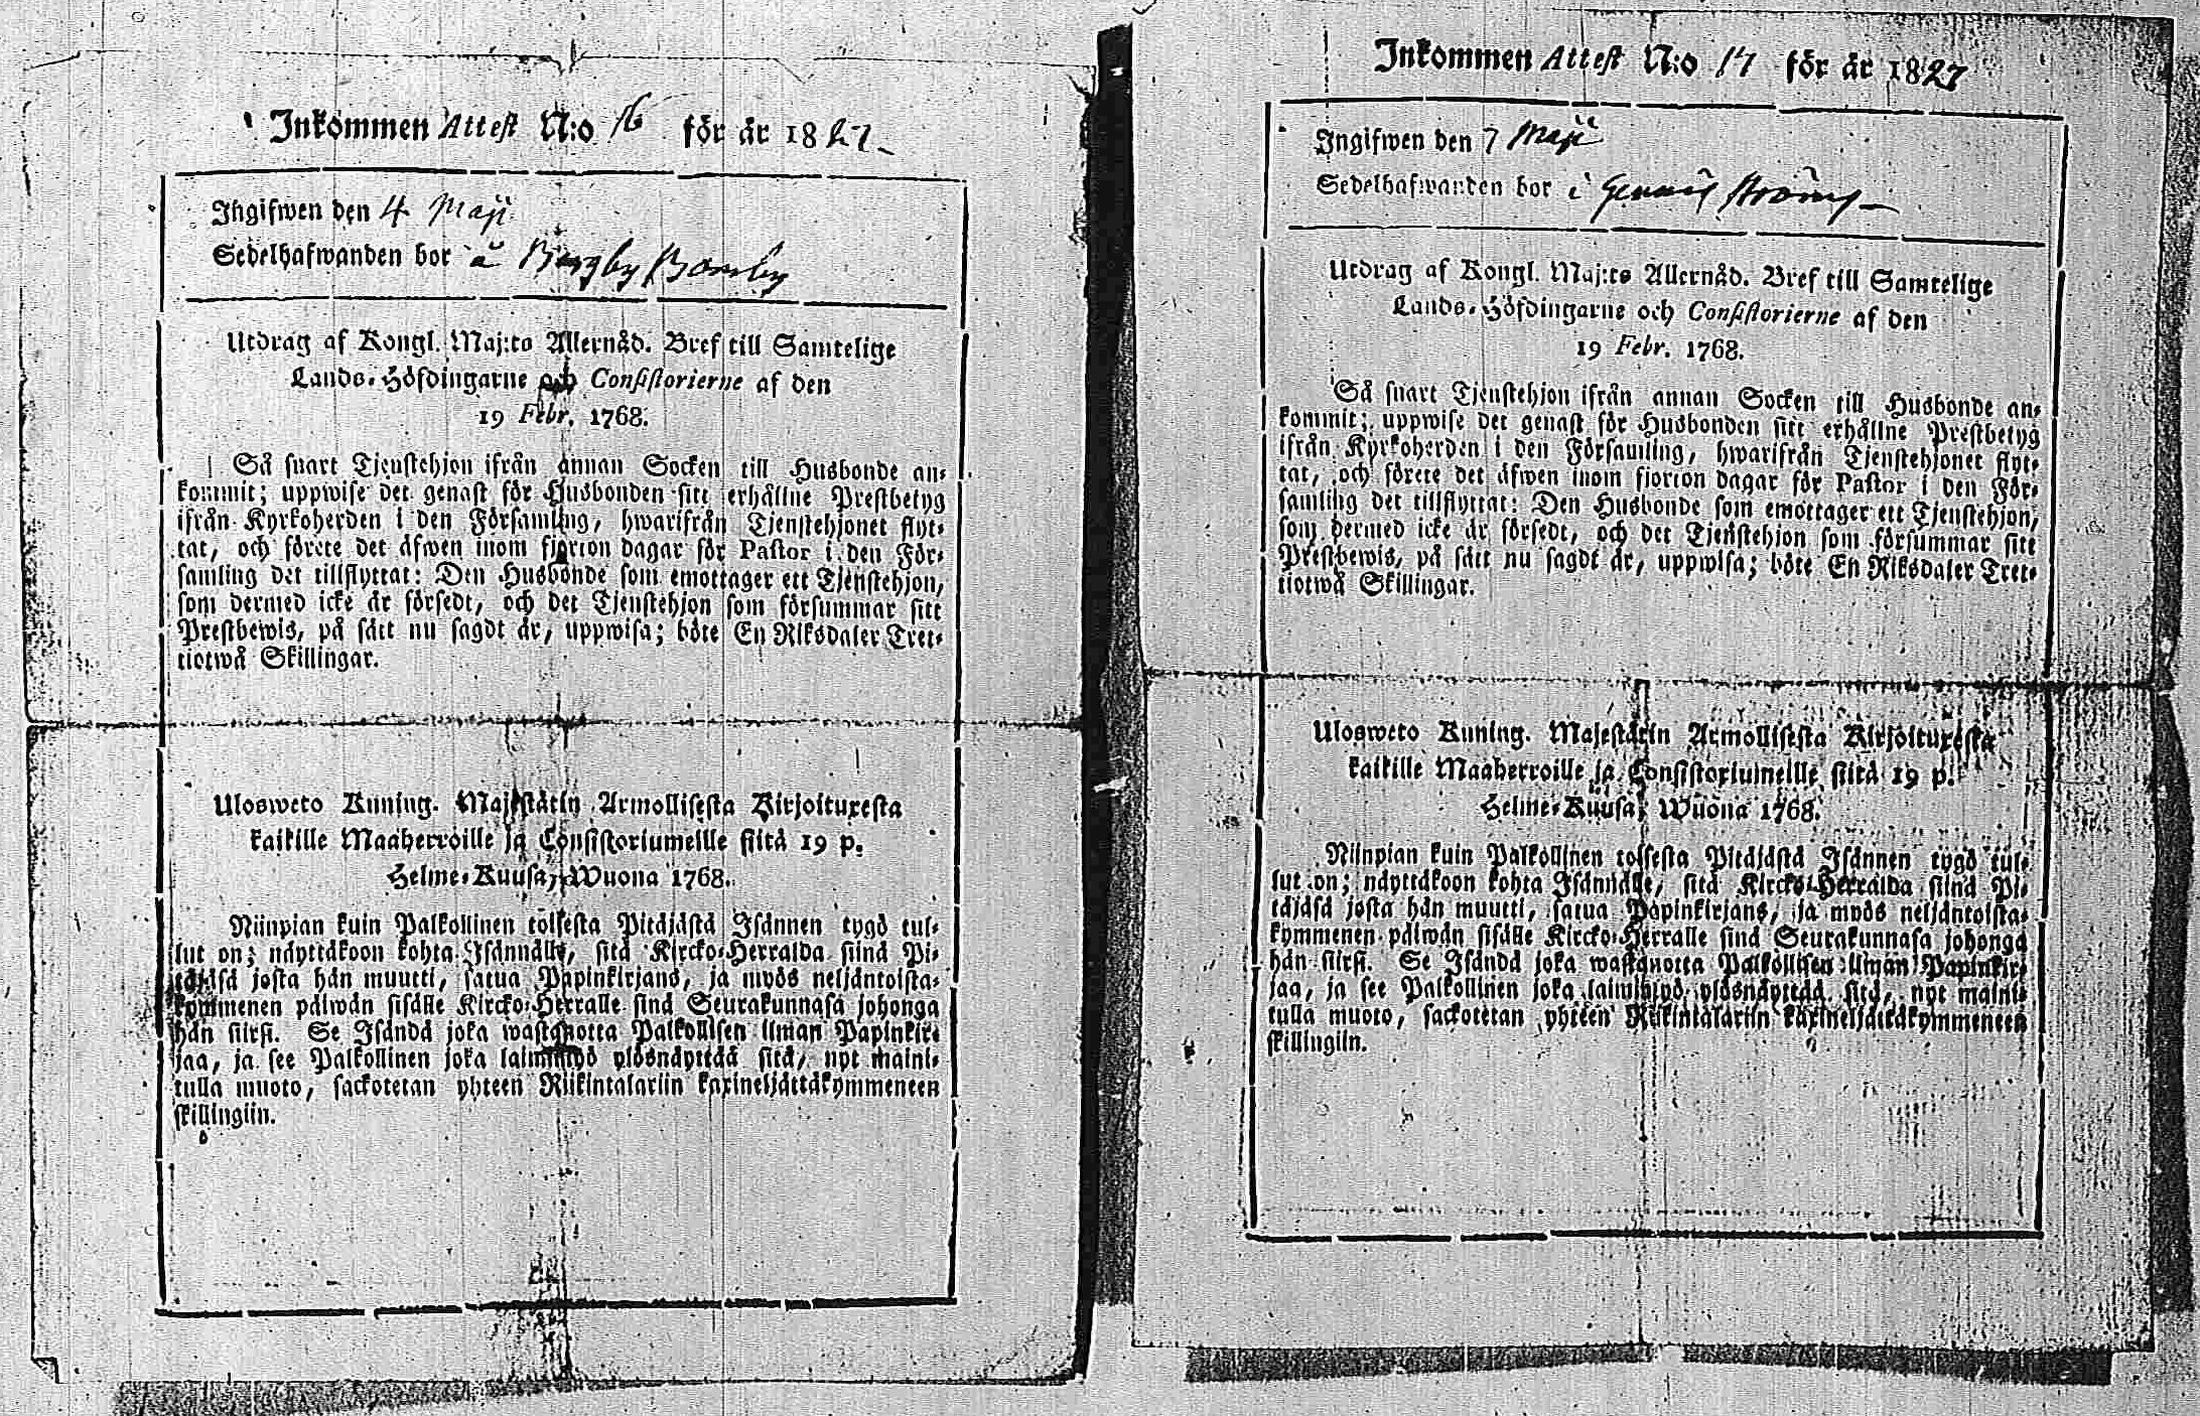 Inkommen Attest N:o 16 för år 1827
Ingifwen den 4 Maji
Sedelhafwanden bor å
Utdrag af Kongl. Maj:ts Allernåd. Bref till Samtelige
Lands-Höfdingarne och Consistorierne af den
19 Febr. 1768.
Så snart Tjenstehjon ifrån annan Socken till Husbonde an-
kommit; uppwise det genast för Husbonden sitt erhållne Prestbetyg
ifrån Kyrkoherden i den Församling, hwarifrån Tjenstehjonet flyt-
tat, och förete det äfwen inom fjorton dagar för Pastor i den För-
samling det tillflyttat: Den Husbonde som emottager ett Tjenstehjon,
som dermed icke är försedt, och det Tjenstehjon som försummar sitt
Prestbewis, på sätt nu sagdt är, uppwisa; böte En Riksdaler Tret-
tiotwå Skillingar.
Uloswеto Kuning. Majestätin Armollisesta Kirjoituxesta
kaikille Maaherroille ja Consistoriumeille siitä 19 p.
Helme-Kuusa, Wuona 1768.
Niinpian kuin Palkollinen toisesta Pitäjästä Isännen tygö tul-
lut on; näyttäkoon kohta Isännälle, sitä Kircko-Herralda siinä Pi-
täjäsä josta hän muutti, saatua Papinkirjans, ja myös neljäntoista-
kymmenen päiwän sisälle Kircko-Herralle sinä Seurakunnasa johonga
hän siirsi. Se Isändä joka wastanotta Palkollisen ilman Papinkir-
jaa, ja see Palkollinen joka laiminlyö ylösnäyttää sitä, nyt maini-
tulla muoto, sackotetan yhteen Riikintalariin kaxineljättäkymmeneen
skillingiin.
Inkommen Attest N:o 17 för år 1827
Ingifwen den 7 Maji
Sedelhafwanden bor i
Utdrag af Kongl. Maj:ts Allernåd. Bref till Samtelige
Lands-Höfdingarne och Consistorierne af den
19 Febr. 1768.
Så snart Tjenstehjon ifrån annan Socken till Husbonde an-
kommit; uppwise det genast för Husbonden sitt erhållne Prestbetyg
ifrån Kyrkoherden i den Församling, hwarifrån Tjenstehjonet flyt-
tat, och förete det äfwen inom fjorton dagar för Pastor i den För-
samling det tillflyttat: Den Husbonde som emottager ett Tjenstehjon,
som dermed icke är försedt, och det Tjenstehjon som försummar sitt
Prestbewis, på sätt nu sagdt är, uppwisa; böte En Riksdaler Tret-
tiotwå Skillingar.
Ulosweto Kuning. Majestätin Armollisesta Kirjoituxesta
kaikille Maaherroille ja Consistoriumeille siitä 19 p.
Helme-Kuusa, Wuona 1768.
Niinpian kuin Palkollinen toisesta Pitäjästä Isännen tygö tul-
lut on; näyttäkoon kohta Isännälle, sitä Kircko-Herralda siinä Pi-
täjäsä josta hän muutti, saatua Papinkirjans, ja myös neljäntoista-
kymmenen päiwän sisälle Kircko-Herralle sinä Seurakunnasa johonga
hän siirsi. Se Isändä joka wastanotta Palkollisen ilman Papinkir-
jaa, ja see Palkollinen joka laiminlyö ylösnäyttää sitä, nyt maini-
tulla muoto, sackotetan yhteen Riikintalariin kaxineljättäkymmeneen
skillingiin.